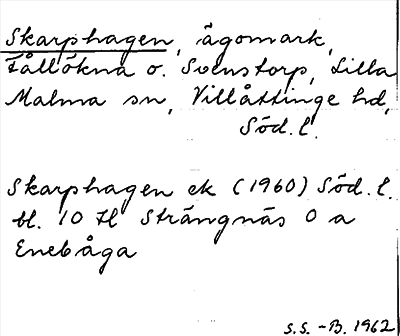 Skarphagen, ägomark,
Fållökna o. Svenstorp, Lilla
Malma sn, Villåttinge hd,
Söd. l.
Skarphagen ek (1960) Söd. l.
bl. 10 H Strängnäs O a
Enebåga
S.S. -B. 1962